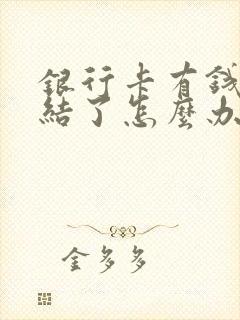 銀行卡有錢
結了怎麼办
金多多